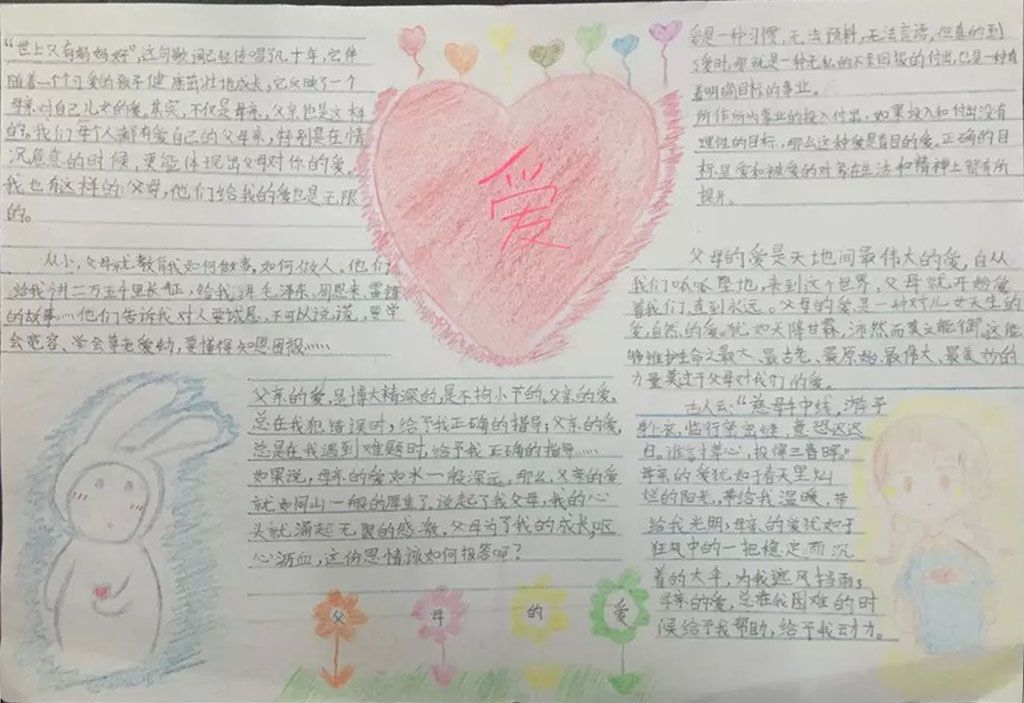 “世上只有妈妈好”,这句歌词已经传唱了几十年,它伴
随着一个个可爱的孩子健康茁壮地成长,它反映了一个
母亲对自己儿女的爱。其实,不仅是母亲,父亲也是这样
的。我们每个人都有爱自己的父母亲,特别是在情
况危急的时候,更能体现出父母对你的爱。
我也有这样的父母,他们给我的爱也是无限
的。
从小,父母就教育我如何做事,如何做人。他们
给我讲二万五千里长征,给我讲毛泽东、周恩来、雷锋
的故事……他们告诉我对人要诚恳,不可以说谎,要学
会宽容、学会尊老爱幼,要懂得知恩图报……
爱
爱是一种习惯,无法预料,无法言语,但真的到
了爱时,那就是一种无私的不求回报的付出,也是一种有
着明确目标的事业。
所作所为事业的投入付出,如果投入和付出没有
理性的目标,那么这种爱是盲目的爱。正确的目
标是爱和被爱的对象在生活和精神上都有所
提升。
父母的爱是天地间最伟大的爱,自从
我们呱呱坠地,来到这个世界,父母就开始爱
着我们,直到永远。父母的爱是一种对儿女天生的
爱,自然的爱。犹如天降甘霖,沛然而莫之能御。这能
够维护生命之最大、最古老、最原始、最伟大、最美妙的
力量莫过于父母对我们的爱。
父亲的爱,是博大精深的,是不拘小节的,父亲的爱,
总在我犯错误时,给予我正确的指导;父亲的爱,
总是在我遇到难题时,给予我正确的指导……
如果说,母亲的爱如水一般深远,那么,父亲的爱
就如同山一般的厚重了,说起了我父母,我的心
头就涌起无限的感激,父母为了我的成长,呕
心沥血,这份恩情该如何报答呢?
古人云:“慈母手中线,游子
身上衣,临行密密缝,意恐迟迟
归。谁言寸草心,报得三春晖。”
母亲的爱犹如于春天里灿
烂的阳光,带给我温暖,带
给我光明,母亲的爱犹如于
狂风中的一把稳定而沉
着的大伞,为我遮风挡雨;
母亲的爱,总在我困难的时
候给予我帮助,给予我动力。
父 母 的 爱